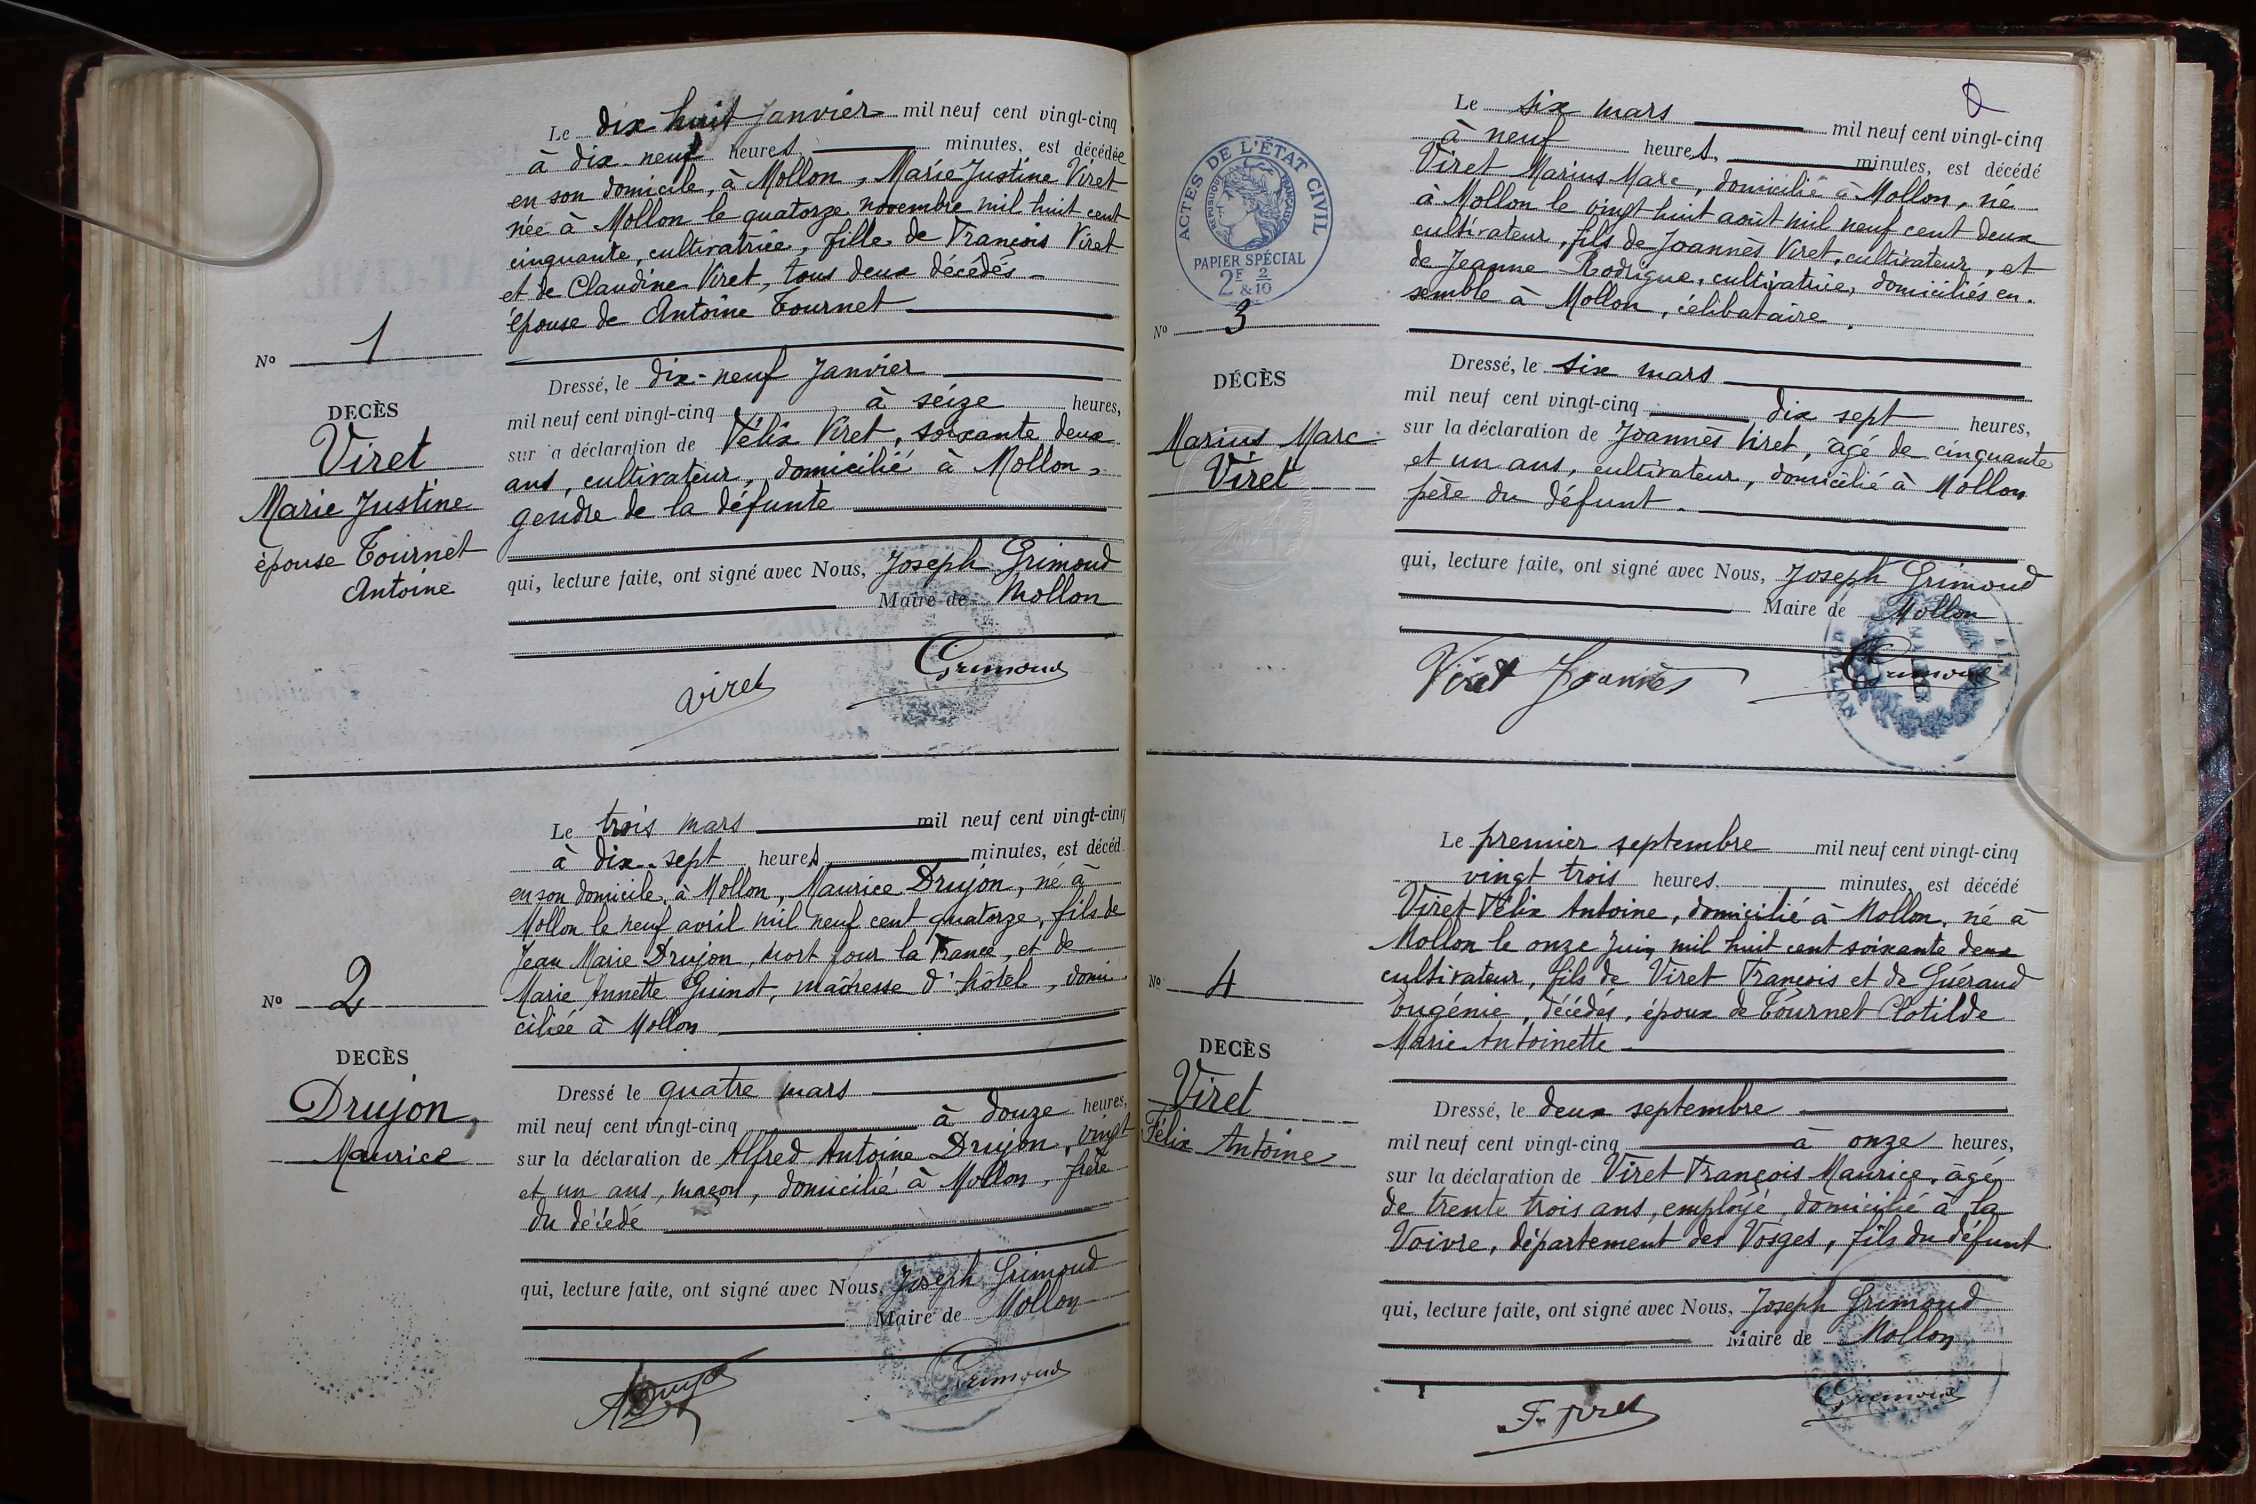 Le dix huit Janvier mil neuf cent vingt-cinq
à dix-neuf heures minutes, est décédée
en son domicile, à Mollon, Marie Justine Viret
née à Mollon le quatorze novembre mil huit cent
cinquante, cultivatrice, fille de François Viret
et de Claudine Viret, tous deux décédés -
épouse de Antoine Tournet
No 1
DECÈS
Viret
Marie Justine
épouse Tournet
Antoine
Dressé, le dix-neuf Janvier
mil neuf cent vingt-cinq à seize heures,
sur a déclaration de Félix Viret, soixante deux
ans, cultivateur, domicilié à Mollon,
gendre de la défunte
qui, lecture faite, ont signé avec Nous, Joseph Grimoud
Maire de Mollon
Viret Grimoud
Le trois mars mil neuf cent vingt-cinq
à dix-sept heures minutes, est décéd
en son domicile, à Mollon, Maurice Drujon, né à
Mollon le neuf avril mil neuf cent quatorze, fils de
Jean Marie Drujon, mort pour la France, et de
Marie Annette Guinot, maîtresse d'hôtel, domi
ciliée à Mollon
No 2
DECÈS
Drujon,
Maurice
Dressé le quatre mars
mil neuf cent vingt-cinq à douze heures,
sur la déclaration de Alfred Antoine Drujon, vingt
et un ans, maçon, domicilié à Mollon, frère
du décédé
qui, lecture faite, ont signé avec Nous, Joseph Grimoud
Maire de Mollon
Grimoud
2
ACTES DE L'ÉTAT CIVIL
RÉPUBLIQUE FRANÇAISE
PAPIER SPÉCIAL
2F & 2/10
Le six mars mil neuf cent vingt-cinq
à neuf heures, minutes, est décédé
Viret Marius Marc, domicilié à Mollon, né
à Mollon le vingt huit août mil neuf cent deux
cultivateur, fils de Joannès Viret, cultivateur, et
de Jeanne Rodrigue, cultivatrice, domiciliés en-
semble à Mollon, célibataire.
No 3
DÉCÈS
Marius Marc
Viret
Dressé, le six mars
mil neuf cent vingt-cinq dix sept heures,
sur la déclaration de Joannès Viret, âgé de cinquante
et un ans, cultivateur, domicilié à Mollon
père du défunt.
qui, lecture faite, ont signé avec Nous, Joseph Grimoud
Maire de Mollon
Viret Joannès Grimoud
Le premier septembre mil neuf cent vingt-cinq
vingt trois heures, minutes, est décédé
Viret Félix Antoine, domicilié à Mollon, né à
Mollon le onze Juin mil huit cent soixante deux
cultivateur, fils de Viret François et de Guéraud
Eugénie, décédés, époux de Tournet Clotilde
Marie Antoinette
No 4
DECÈS
Viret
Félix Antoine
Dressé, le deux septembre
mil neuf cent vingt-cinq à onze heures,
sur la déclaration de Viret François Maurice, âgé
de trente trois ans, employé, domicilié à la
Voivre, département des Vosges, fils du défunt
qui, lecture faite, ont signé avec Nous, Joseph Grimoud
Maire de Mollon
F. Viret Grimoud